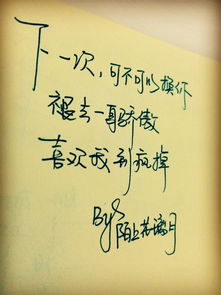 下一次,可不可以换你
褪去一身骄傲
喜欢我到疯掉
By 陌上月